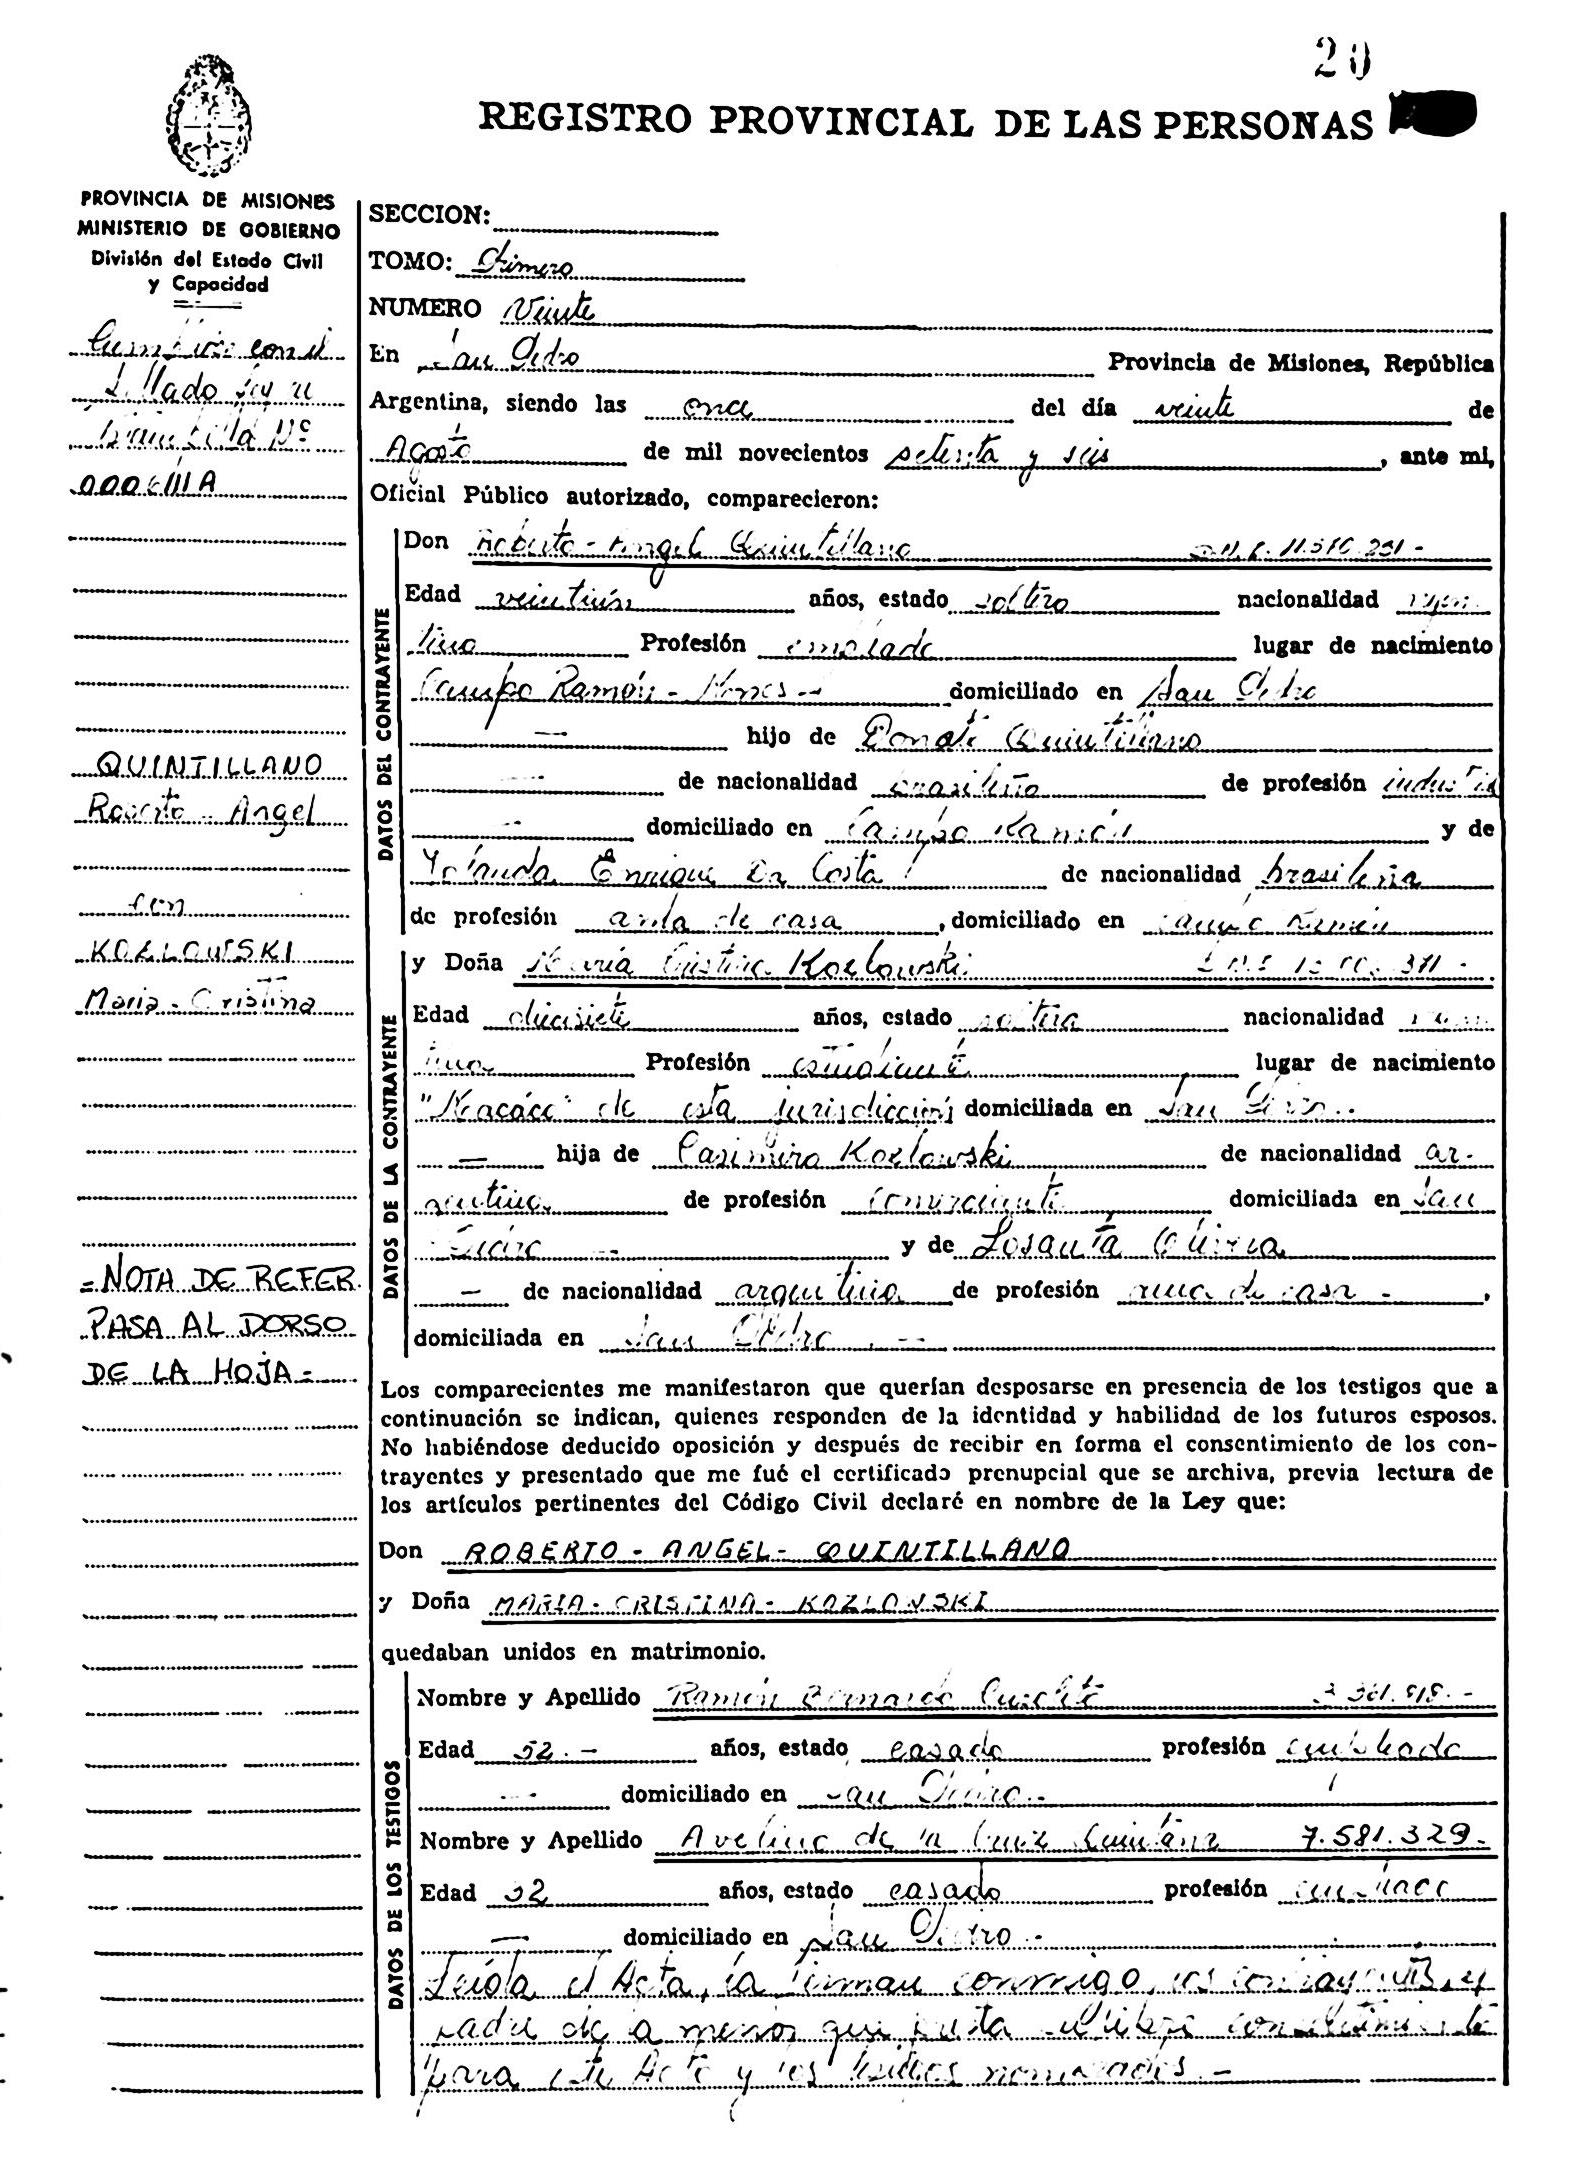 20
REGISTRO PROVINCIAL DE LAS PERSONAS
PROVINCIA DE MISIONES
MINISTERIO DE GOBIERNO
División del Estado Civil
y Capacidad
con el
Sellado
Nº
QUINTILLANO
Roberto - Angel
con
KOZLOWSKI
Maria - Cristina
= NOTA DE REFER.
PASA AL DORSO
DE LA HOJA =
SECCION:
TOMO: Primero
NUMERO Veinte
En San Pedro Provincia de Misiones, República
Argentina, siendo las once del día veinte de
Agosto de mil novecientos setenta y seis, ante mi,
Oficial Público autorizado, comparecieron:
DATOS DEL CONTRAYENTE
Don Roberto - Angel Quintillano
Edad veintiún años, estado soltero nacionalidad argen
tino Profesión empleado lugar de nacimiento
Campo Ramón - domiciliado en San Pedro
— hijo de Donato Quintillano
— de nacionalidad brasileño de profesión industrial
— domiciliado en Campo Ramón y de
Yolanda Enrique Da Costa de nacionalidad brasileña
de profesión ama de casa, domiciliado en Campo Ramón
DATOS DE LA CONTRAYENTE
y Doña María Cristina Kozlowski 371 -
Edad diecisiete años, estado soltera nacionalidad argen
tina Profesión estudiante lugar de nacimiento
de esta jurisdicción domiciliada en San Pedro -
— hija de Casimiro Kozlowski de nacionalidad ar-
gentino de profesión comerciante domiciliada en San
Pedro — y de Losanta Olivera
— de nacionalidad argentina de profesión ama de casa -,
domiciliada en San Pedro . —
Los comparecientes me manifestaron que querían desposarse en presencia de los testigos que a
continuación se indican, quienes responden de la identidad y habilidad de los futuros esposos.
No habiéndose deducido oposición y después de recibir en forma el consentimiento de los con-
trayentes y presentado que me fué el certificado prenupcial que se archiva, previa lectura de
los artículos pertinentes del Código Civil declaré en nombre de la Ley que:
Don ROBERTO - ANGEL - QUINTILLANO
y Doña MARIA - CRISTINA - KOZLOWSKI
quedaban unidos en matrimonio.
DATOS DE LOS TESTIGOS
Nombre y Apellido Ramón Bernardo
Edad 52. - años, estado casado profesión empleado
— domiciliado en San Pedro -
Nombre y Apellido Avelino de la Cruz Quintana 7.581.329 -
Edad años, estado casado profesión empleado
— domiciliado en San Pedro -
Leída el Acta, la firman conmigo, los contrayentes, el
padre de la menor que presta su libre consentimiento
para este Acto y los testigos nombrados. -